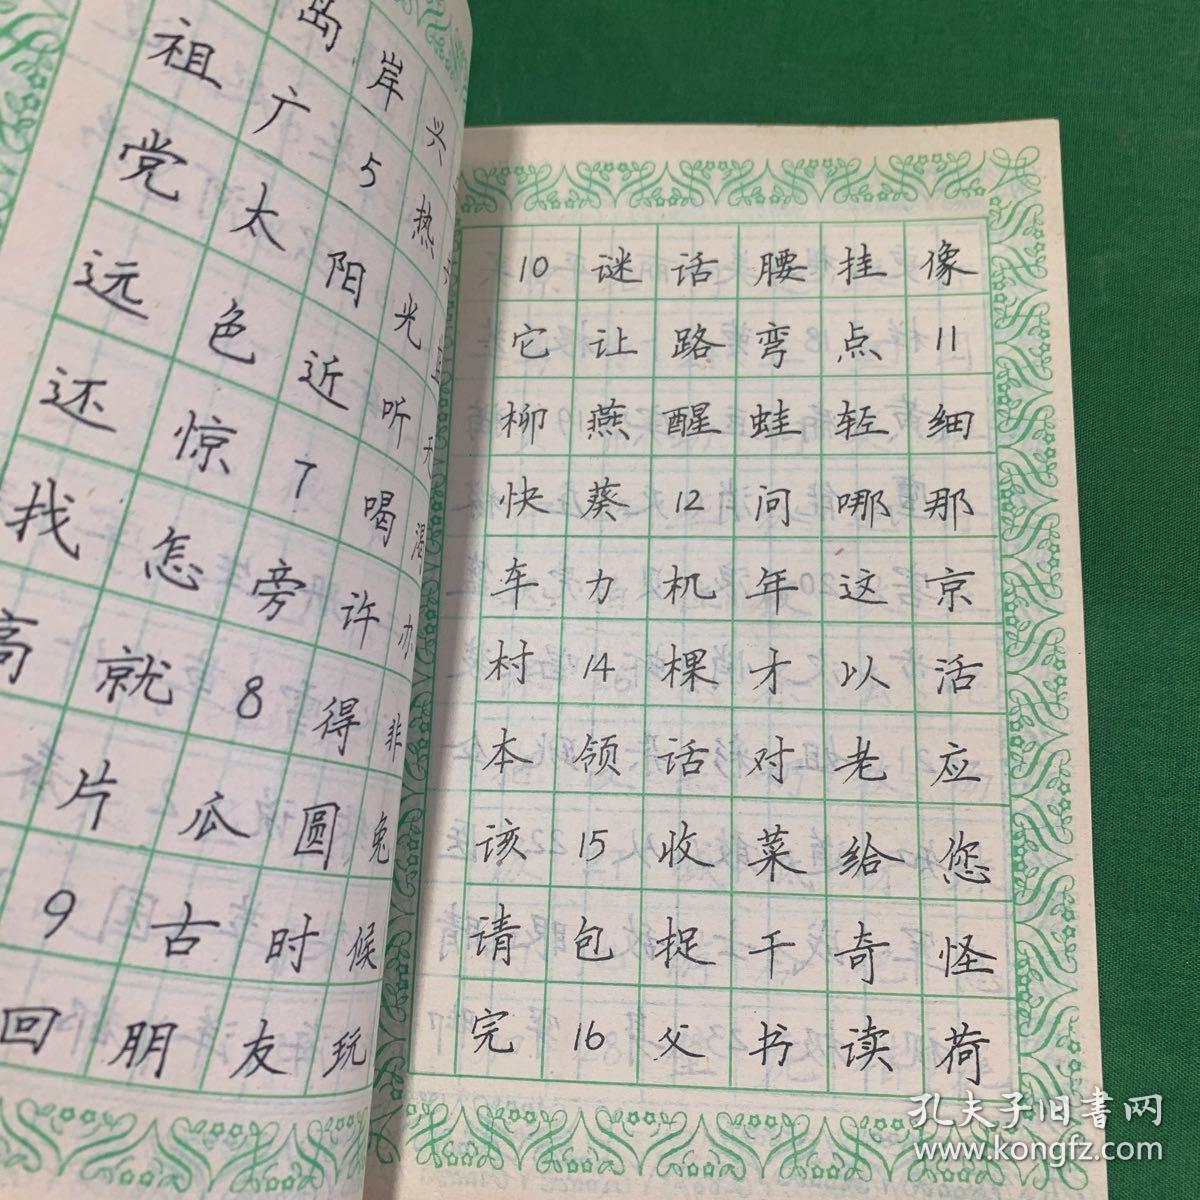 岛 岸 兴
祖 广 5 热
党 太 阳 光
远 色 近 听
还 惊 7 喝 渴
找 怎 旁 许 办
高 就 8 得 非
片 瓜 圆 兔
9 古 时 候
回 朋 友 玩
10 谜 话 腰 挂 像
它 让 路 弯 点 11
柳 燕 醒 蛙 轻 细
快 葵 12 问 哪 那
车 力 机 年 这 京
村 14 棵 才 以 活
本 领 话 对 老 应
该 15 收 菜 给 您
请 包 捉 干 奇 怪
完 16 父 书 读 荷
孔夫子旧书网
www.kongfz.com